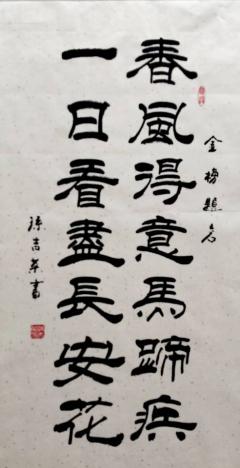 金榜題名
春風得意馬蹄疾
一日看盡長安花